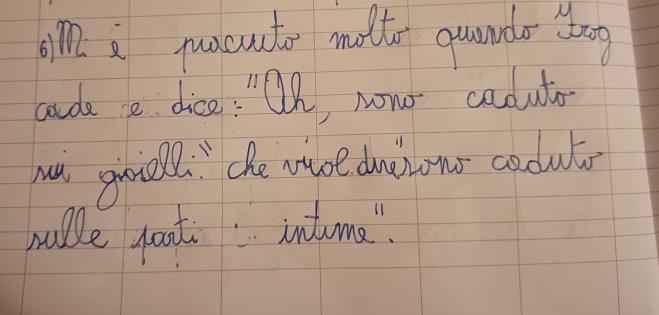 6) Mi è piaciuto molto quando "frog
cade e dice: "Oh, sono caduto
sui gioielli." che vuol dire "sono caduto
sulle parti : intime".